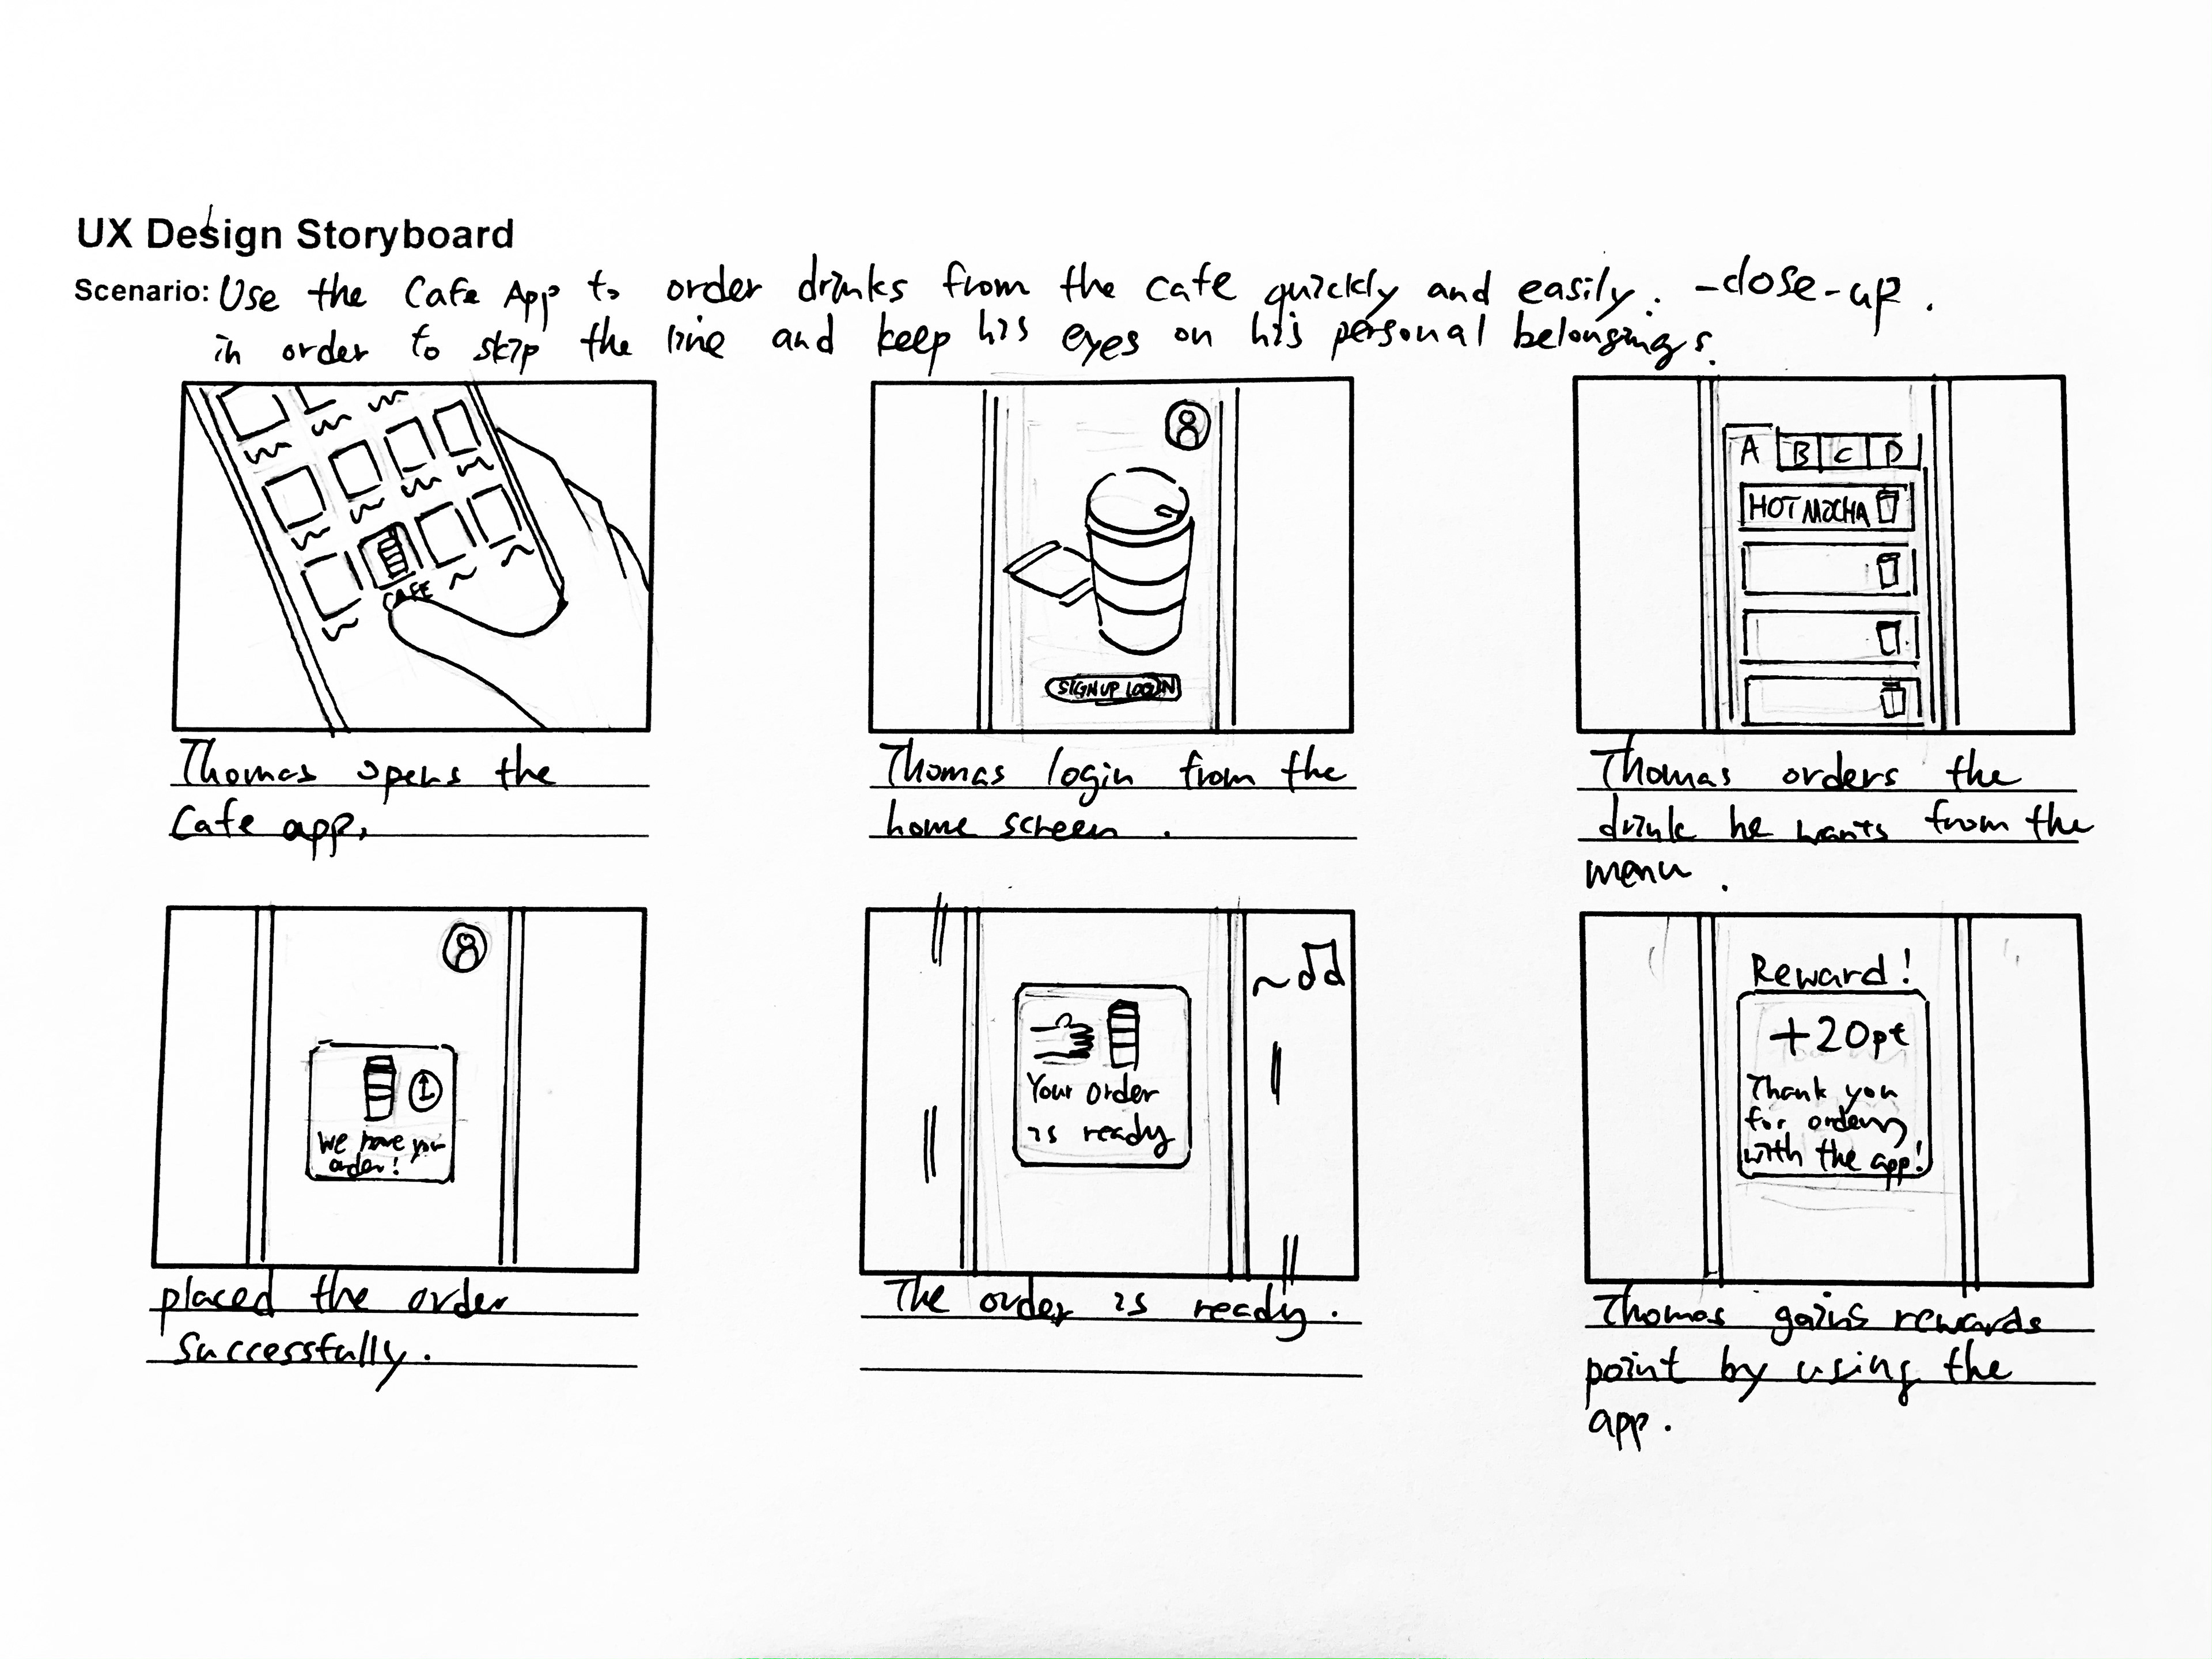 UX Design Storyboard
Scenario: Use the Cafe App to order drinks from the cafe quickly and easily. -close-up.
in order to skip the line and keep his eyes on his personal belongings.
CAFE
Thomas opens the
Cafe app.
SIGN UP LOGIN
Thomas login from the
home screen.
A B C D
HOT MOCHA
Thomas orders the
drink he wants from the
menu.
We have your
order!
placed the order
successfully.
Your order
is ready
The order is ready.
Reward!
+20pt
Thank you
for ordering
with the app!
Thomas gains rewards
point by using the
app.